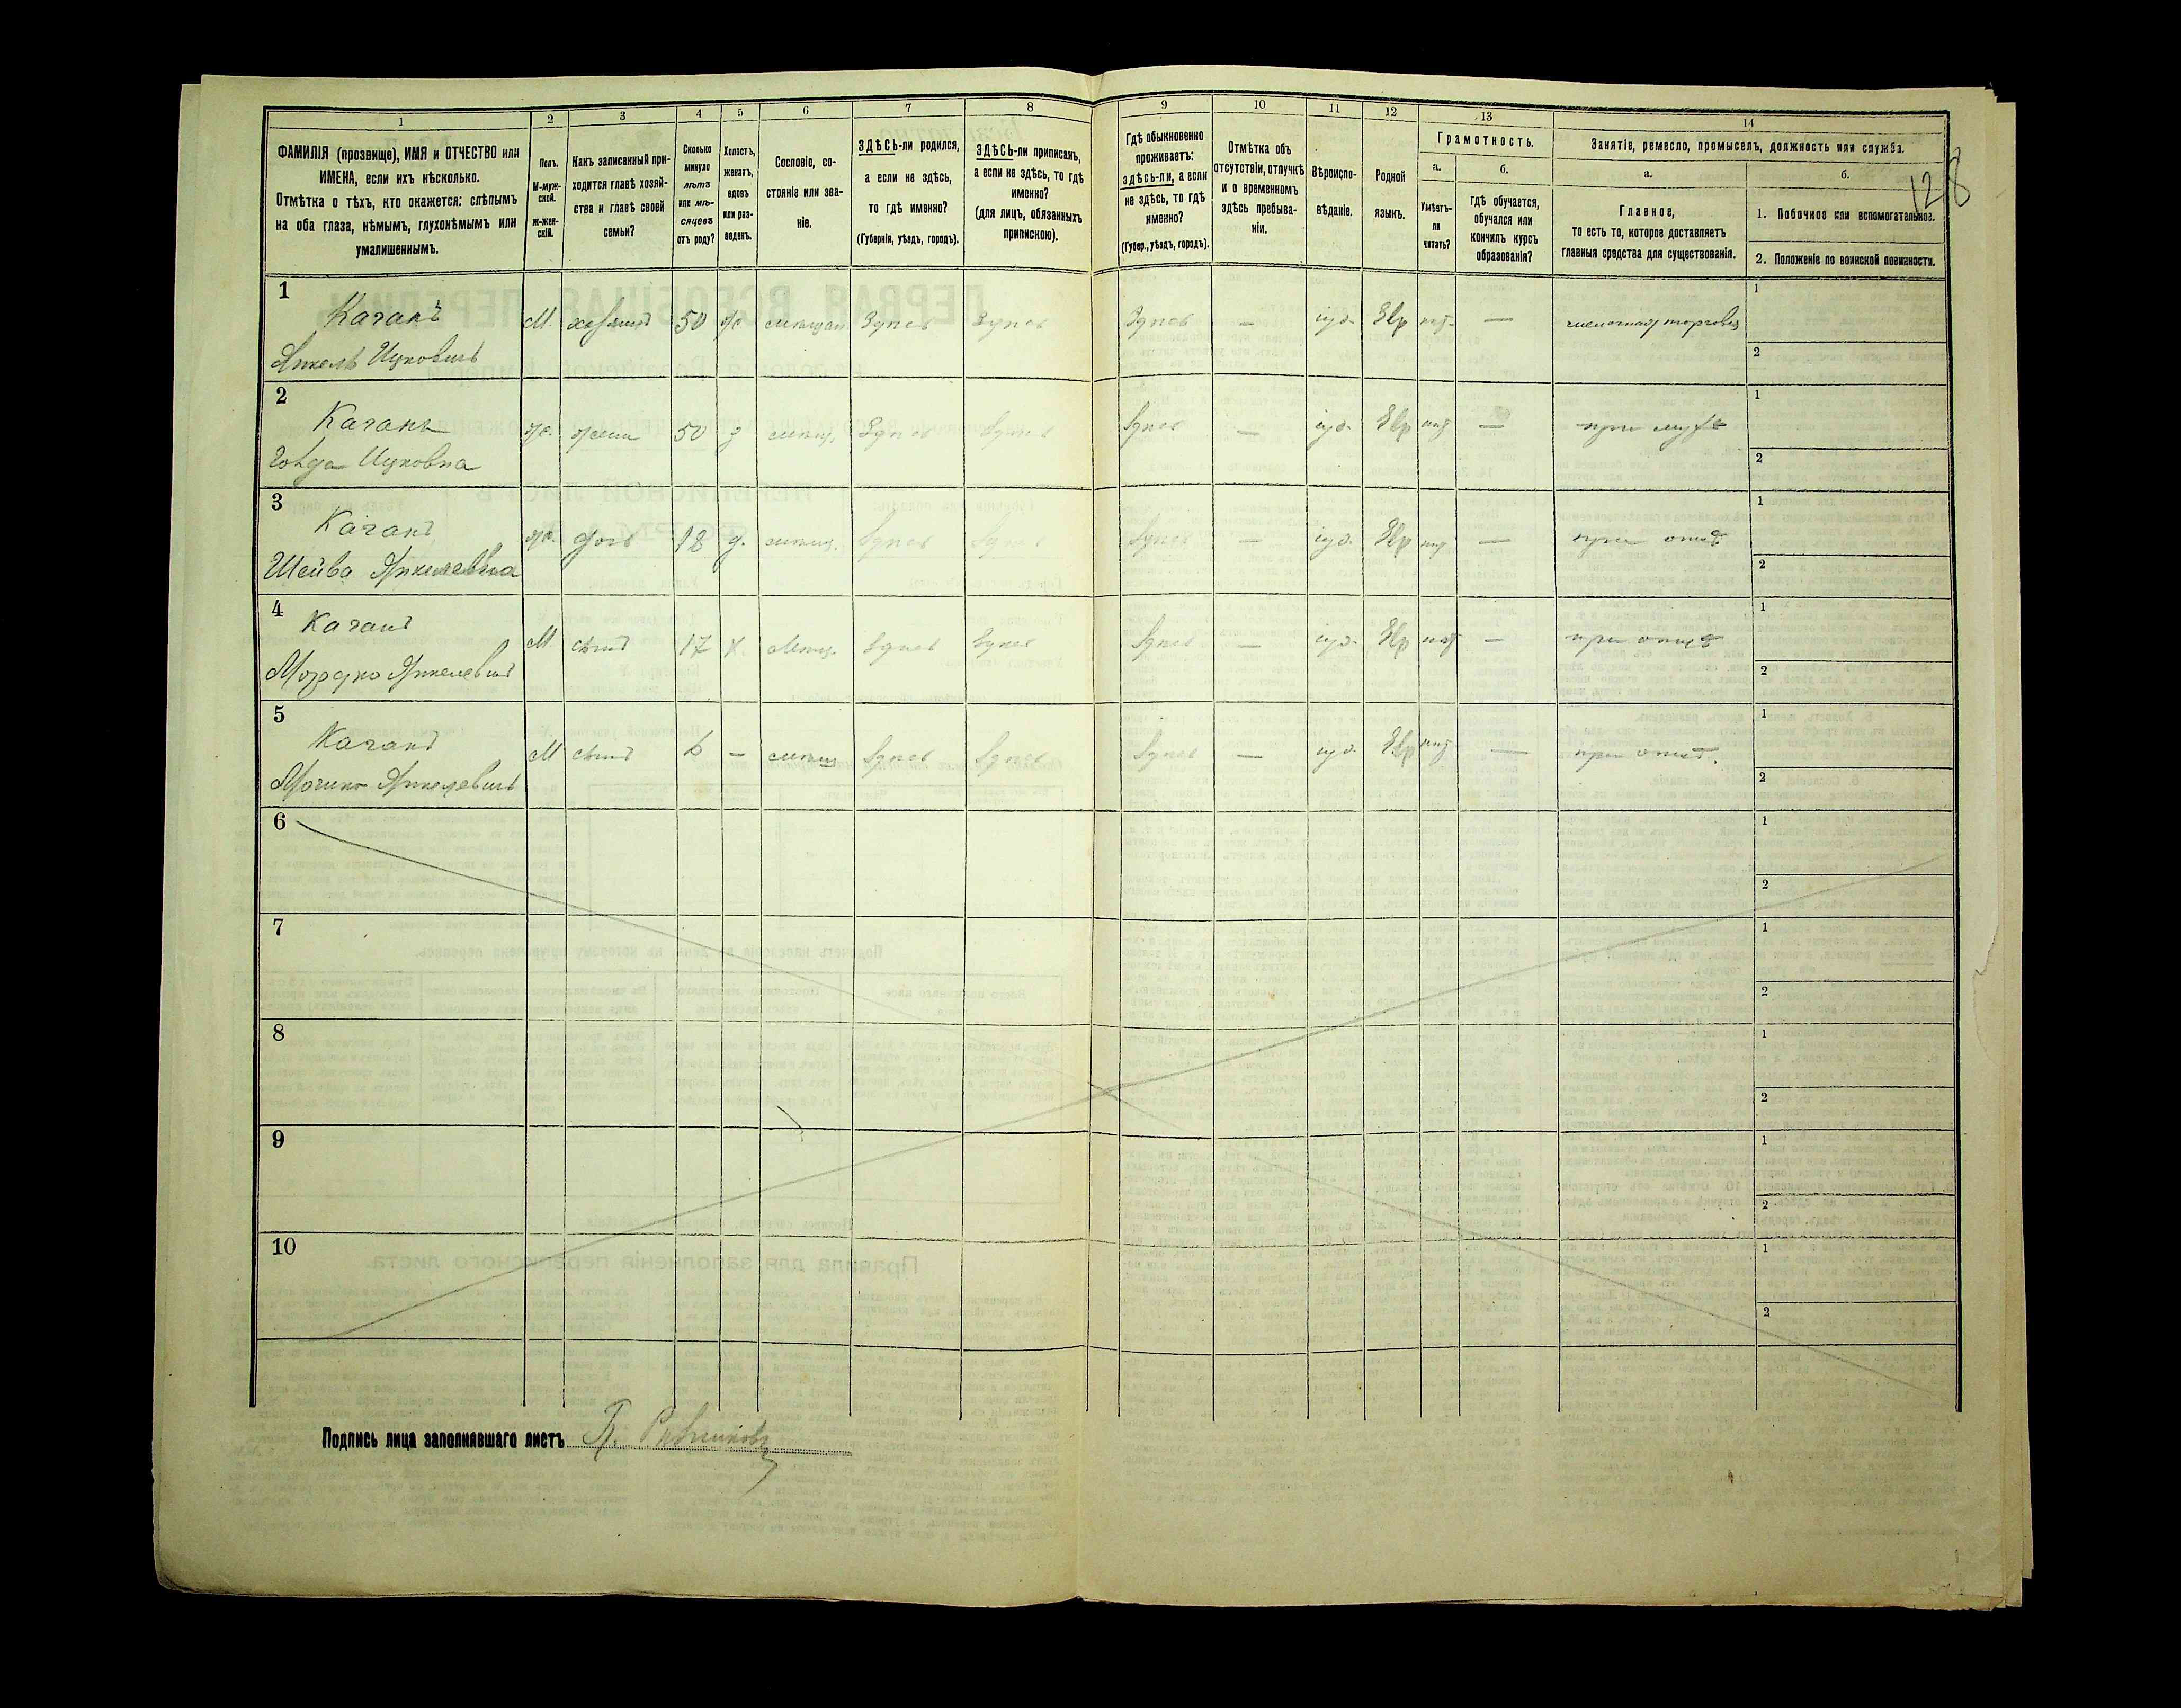 128
1 2 3 4 5 6 7 8 9 10 11 12 13 14
ФАМИЛІЯ (прозвище), ИМЯ и ОТЧЕСТВО или
ИМЕНА, если ихъ нѣсколько.
Отмѣтка о тѣхъ, кто окажется: слѣпымъ
на оба глаза, нѣмымъ, глухонѣмымъ или
умалишеннымъ.
Полъ.
М-муж-
ской.
ж-жен-
скій.
Какъ записанный при-
ходится главѣ хозяй-
ства и главѣ своей
семьи?
Сколько
минуло
лѣтъ
или мѣ-
сяцевъ
отъ роду?
Холостъ,
женатъ,
вдовъ
или раз-
веденъ.
Сословіе, со-
стояніе или зва-
ніе.
ЗДѢСЬ-ли родился,
а если не здѣсь,
то гдѣ именно?
(Губернія, уѣздъ, городъ).
ЗДѢСЬ-ли приписанъ,
а если не здѣсь, то гдѣ
именно?
(для лицъ, обязанныхъ
припискою).
Гдѣ обыкновенно
проживаетъ:
здѣсь-ли, а если
не здѣсь, то гдѣ
именно?
(Губер., уѣздъ, городъ).
Отмѣтка объ
отсутствіи, отлучкѣ
и о временномъ
здѣсь пребыва-
ніи.
Вѣроиспо-
вѣданіе.
Родной
языкъ.
Грамотность.
а.
Умѣетъ-
ли
читать?
б.
гдѣ обучается,
обучался или
кончилъ курсъ
образованія?
Занятіе, ремесло, промыселъ, должность или служба.
а.
Главное,
то есть то, которое доставляетъ
главныя средства для существованія.
б.
1. Побочное или вспомогательное.
2. Положеніе по воинской повинности.
1 1
Качанъ М. хозяинъ 50 ж. мѣщан Здѣсь Здѣсь Здѣсь — іуд. Евр нѣт — торговец
Янкель Ицковичъ 2
2 1
Качанъ ж. жена 50 з мѣщ. Здѣсь Здѣсь Здѣсь — іуд. Евр нѣт — при мужѣ
Ицковна 2
3 1
Качанъ ж. дочь 18 д. мѣщ. Здѣсь Здѣсь Здѣсь — іуд. Евр нѣт — при отцѣ
Шейва Янкелевна 2
4 1
Качанъ М сынъ 17 х. мѣщ. Здѣсь Здѣсь Здѣсь — іуд. Евр нѣт — при отцѣ
Мордко Янкелевичъ 2
5 1
Качанъ М сынъ 6 — мѣщ Здѣсь Здѣсь Здѣсь — іуд. Евр нѣт — при отцѣ.
Янкелевичъ 2
6 1
2
7 1
2
8 1
2
9 1
2
10 1
2
Подпись лица заполнявшаго листъ